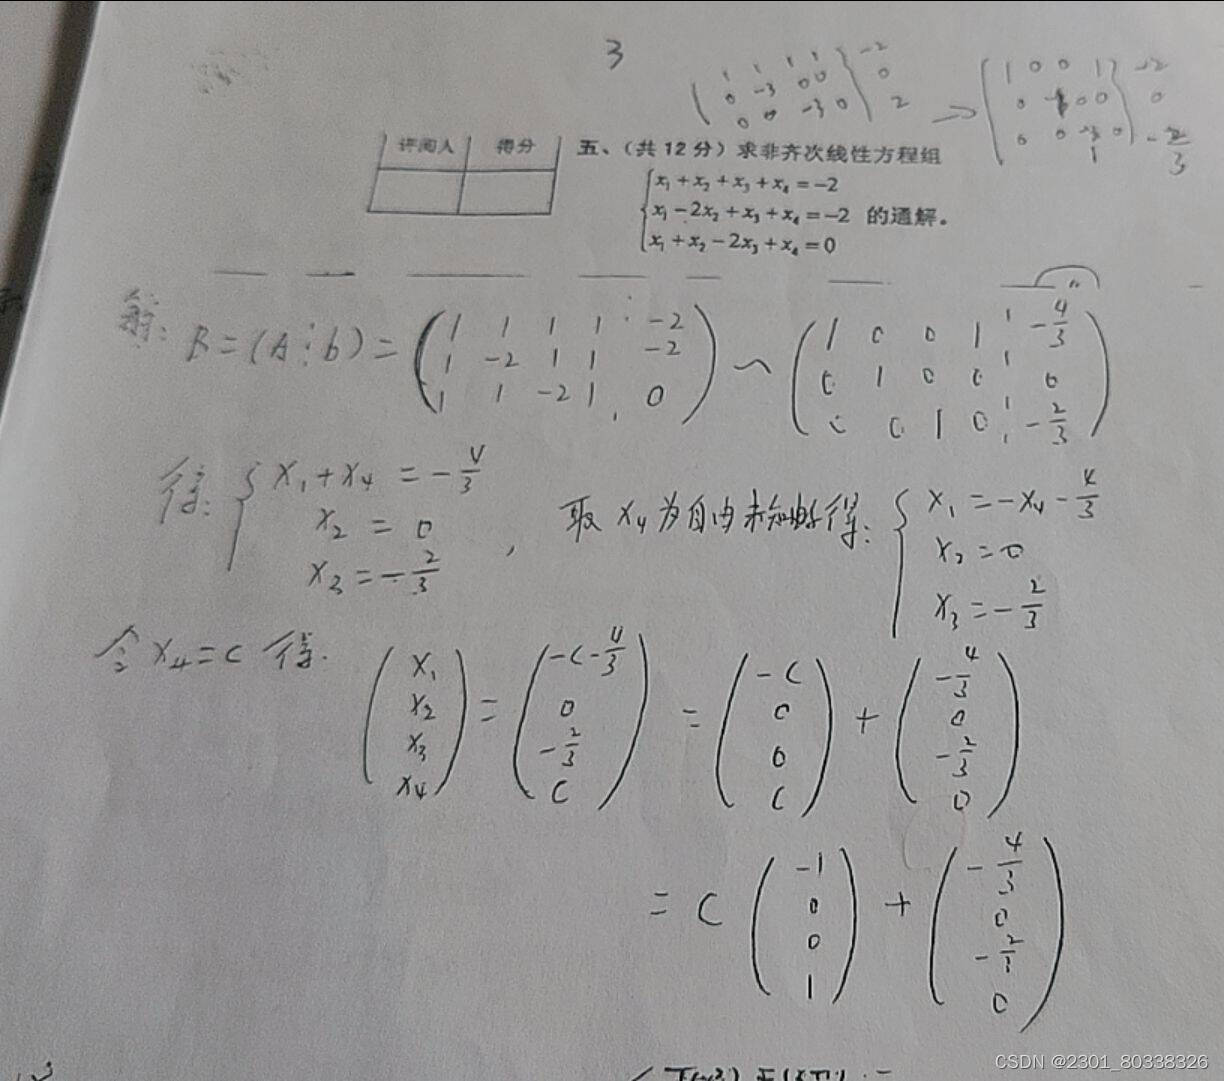 3
1 1 1 1 -2
0 -3 0 0 0
0 0 -3 0 2
→
1 0 0 1 -2
0 0 0 0
0 0 -3 0 -2/3
1
评阅人 得分
五、(共12分)求非齐次线性方程组
x₁+x₂+x₃+x₄=-2
x₁-2x₂+x₃+x₄=-2 的通解。
x₁+x₂-2x₃+x₄=0
解: B=(A⋮b)= (1 1 1 1 ⋮ -2) ~ (1 0 0 1 -4/3)
(1 -2 1 1 -2) (0 1 0 0 0)
(1 1 -2 1 0) (0 0 1 0 -2/3)
得: { x₁+x₄ = -4/3
x₂ = 0
x₃ = -2/3
, 取 x₄ 为自由未知数得: { x₁=-x₄-4/3
x₂=0
x₃=-2/3
令 x₄=c 得. (x₁ x₂ x₃ x₄) = (-c-4/3 0 -2/3 c) = (-c 0 0 c) + (-4/3 0 -2/3 0)
= c (-1 0 0 1) + (-4/3 0 -2/3 0)
CSDN @2301_80338326